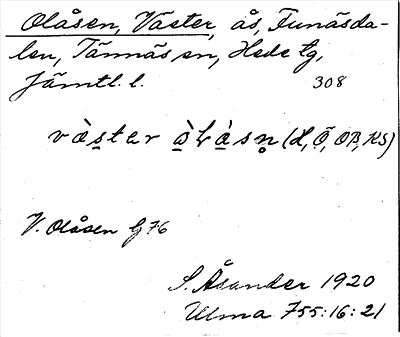 Olåsen, Väster, ås, Funäsda-
len, Tännäs sn, Hede tg,
Jämtl. l.
308
vä̀s̠tar
V. Olåsen G 76
S. Åsander 1920
Ulma 755:16:21